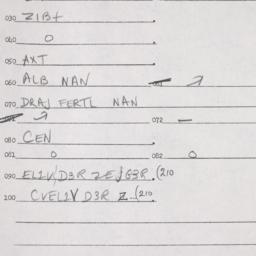 030 ZIB+
040 0
050 AXT
060 ALB NAN 061
070 DRAJ FERTL NAN
072 —
080 CEN
081 0 082 0
090 EL2V,D3R ZEJG3R (210
100 CVEL2V D3R Z..(210